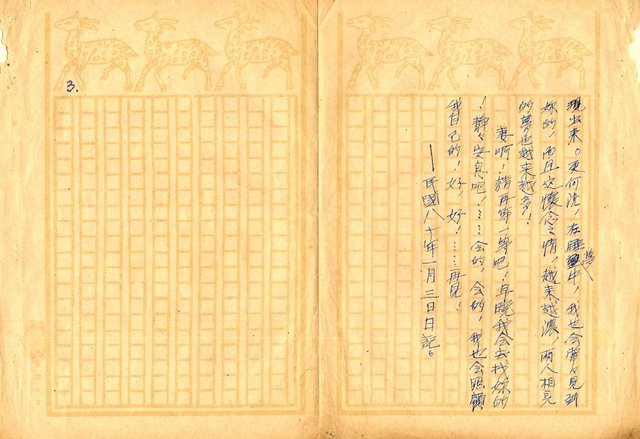 現出来。更何況，在睡夢中，我也会常々見到
妳的，而且这懷念之情，越来越濃，兩人相見
的夢也越来越多！
妻啊！請再等一等吧！早晚我会去找妳的
！靜々安息吧！……会的，会的，我也会照顧
我自己的！好，好！……再見！
——民國八十年一月三日日記。
3.